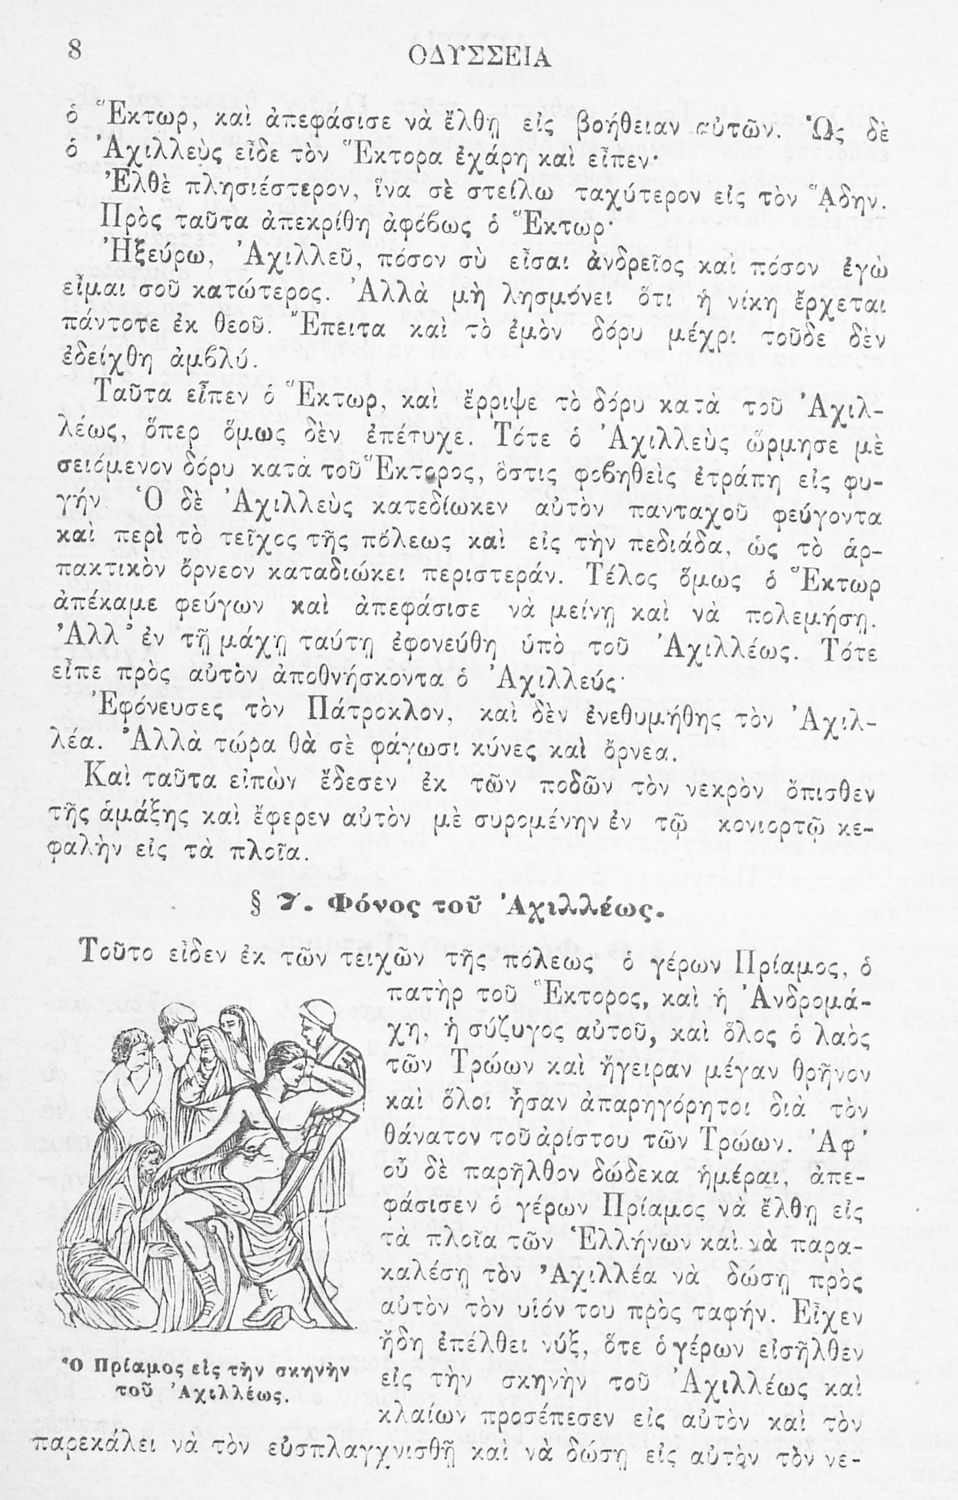 8
ΟΔΥΣΣΕΙΑ
ὁ Ἕκτωρ, καὶ ἀπεφάσισε νὰ ἔλθῃ εἰς βοήθειαν αὐτῶν. Ὡς δὲ
ὁ Ἀχιλλεὺς εἶδε τὸν Ἕκτορα ἐχάρη καὶ εἶπεν·
Ἐλθὲ πλησιέστερον, ἵνα σὲ στείλω ταχύτερον εἰς τὸν Ἅδην.
Πρὸς ταῦτα ἀπεκρίθη ἀφόβως ὁ Ἕκτωρ·
Ἠξεύρω, Ἀχιλλεῦ, πόσον σὺ εἶσαι ἀνδρεῖος καὶ πόσον ἐγὼ
εἶμαι σοῦ κατώτερος. Ἀλλὰ μὴ λησμόνει ὅτι ἡ νίκη ἔρχεται
πάντοτε ἐκ θεοῦ. Ἔπειτα καὶ τὸ ἐμὸν δόρυ μέχρι τοῦδε δὲν
ἐδείχθη ἀμβλύ.
Ταῦτα εἶπεν ὁ Ἕκτωρ, καὶ ἔρριψε τὸ δόρυ κατὰ τοῦ Ἀχιλ-
λέως, ὅπερ ὅμως δὲν ἐπέτυχε. Τότε ὁ Ἀχιλλεὺς ὥρμησε μὲ
σειόμενον δόρυ κατὰ τοῦ Ἕκτορος, ὅστις φοβηθεὶς ἐτράπη εἰς φυ-
γήν Ὁ δὲ Ἀχιλλεὺς κατεδίωκεν αὐτὸν πανταχοῦ φεύγοντα
καὶ περὶ τὸ τεῖχος τῆς πόλεως καὶ εἰς τὴν πεδιάδα, ὡς τὸ ἁρ-
πακτικὸν ὄρνεον καταδιώκει περιστεράν. Τέλος ὅμως ὁ Ἕκτωρ
ἀπέκαμε φεύγων καὶ ἀπεφάσισε νὰ μείνῃ καὶ νὰ πολεμήσῃ.
Ἀλλ' ἐν τῇ μάχῃ ταύτῃ ἐφονεύθη ὑπὸ τοῦ Ἀχιλλέως. Τότε
εἶπε πρὸς αὐτὸν ἀποθνήσκοντα ὁ Ἀχιλλεύς·
Ἐφόνευσες τὸν Πάτροκλον, καὶ δὲν ἐνεθυμήθης τὸν Ἀχιλ-
λέα. Ἀλλὰ τώρα θὰ σὲ φάγωσι κύνες καὶ ὄρνεα.
Καὶ ταῦτα εἰπὼν ἔδεσεν ἐκ τῶν ποδῶν τὸν νεκρὸν ὄπισθεν
τῆς ἁμάξης καὶ ἔφερεν αὐτὸν μὲ συρομένην ἐν τῷ κονιορτῷ κε-
φαλὴν εἰς τὰ πλοῖα.
§ 7. Φόνος τοῦ Ἀχιλλέως.
Τοῦτο εἶδεν ἐκ τῶν τειχῶν τῆς πόλεως ὁ γέρων Πρίαμος, ὁ
πατὴρ τοῦ Ἕκτορος, καὶ ἡ Ἀνδρομά-
χη, ἡ σύζυγος αὐτοῦ, καὶ ὅλος ὁ λαὸς
τῶν Τρώων καὶ ἤγειραν μέγαν θρῆνον
καὶ ὅλοι ἦσαν ἀπαρηγόρητοι διὰ τὸν
θάνατον τοῦ ἀρίστου τῶν Τρώων. Ἀφ'
οὗ δὲ παρῆλθον δώδεκα ἡμέραι, ἀπε-
φάσισεν ὁ γέρων Πρίαμος νὰ ἔλθῃ εἰς
τὰ πλοῖα τῶν Ἑλλήνων καὶ νὰ παρα-
καλέσῃ τὸν Ἀχιλλέα νὰ δώσῃ πρὸς
αὐτὸν τὸν υἱόν του πρὸς ταφήν. Εἶχεν
ἤδη ἐπέλθει νύξ, ὅτε ὁ γέρων εἰσῆλθεν
εἰς τὴν σκηνὴν τοῦ Ἀχιλλέως καὶ
κλαίων προσέπεσεν εἰς αὐτὸν καὶ τὸν
παρεκάλει νὰ τὸν εὐσπλαγχνισθῇ καὶ νὰ δώσῃ εἰς αὐτὸν τὸν νε-
Ὁ Πρίαμος εἰς τὴν σκηνὴν
τοῦ Ἀχιλλέως.